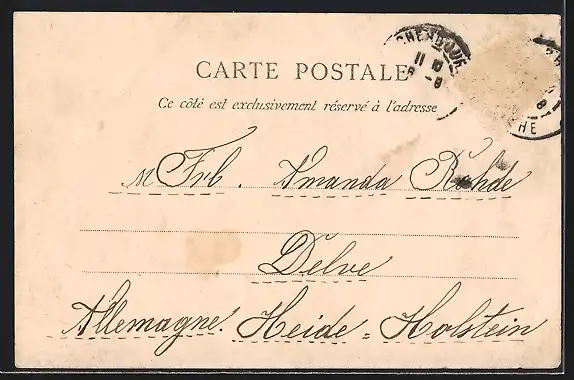 CARTE POSTALE
Ce côté est exclusivement réservé à l'adresse
M Frl. Amanda Rohde
Delve
Allemagne. Heide = Holstein